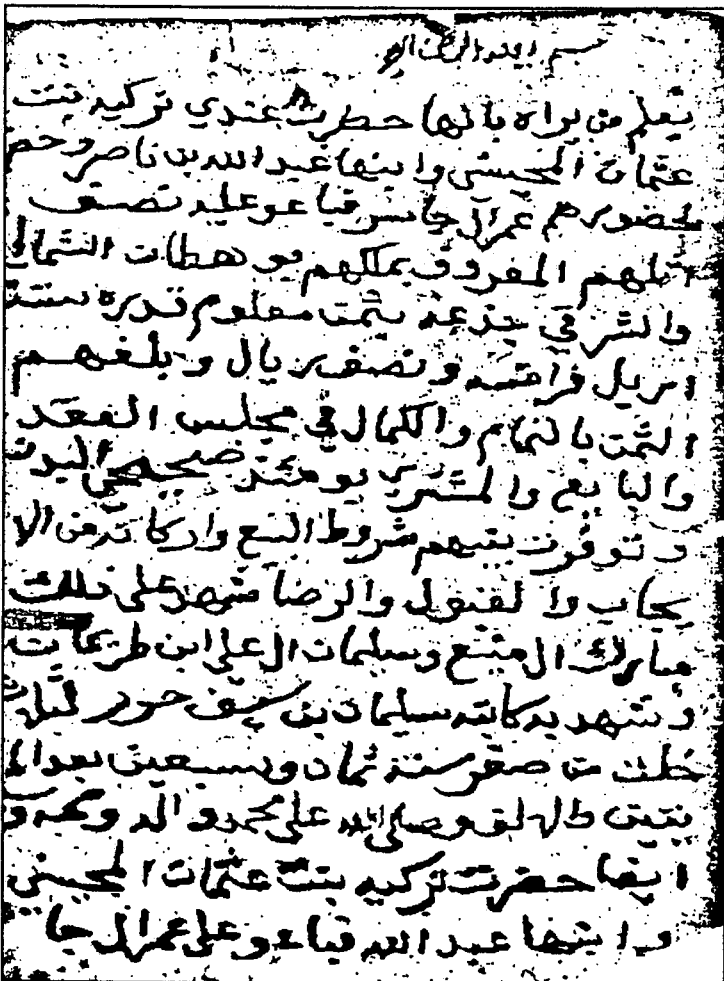 بسم الله الرحمن الرحيم
يعلم من يراه بانها حظرت عندي تركيه بنت
عثمان المحيسني وابنها عبد الله بن ناصر وحظر
لحضورهم عمر ال جاسر فباعو عليه نصيف
اثلهم المعروف بملكهم هطات الشمالي
والشرقي جذعه بثمن معلوم قدره ستة
اريل فرانسه ونصف ريال وبلغهم
الثمن بالتمام والكمال في مجلس العقد
والبايع والمشتري يومئذ صحيحي البدن
وتوفرت بينهم شروط البيع واركانه من الا
يجاب والقبول والرضا شهد على ذلك
مبارك ال وسليمان العلي ابن
وشهد به كاتبه سليمان بن سيف حرر
خلت من صفر سنة ثمان وتسعين بعد الما
يتين والالف وصلى الله على محمد واله وصحبه و
ايضا حضرت تركيه بنت عثمان المحيسني
وابنها عبد الله فباعو على عمر ال جا